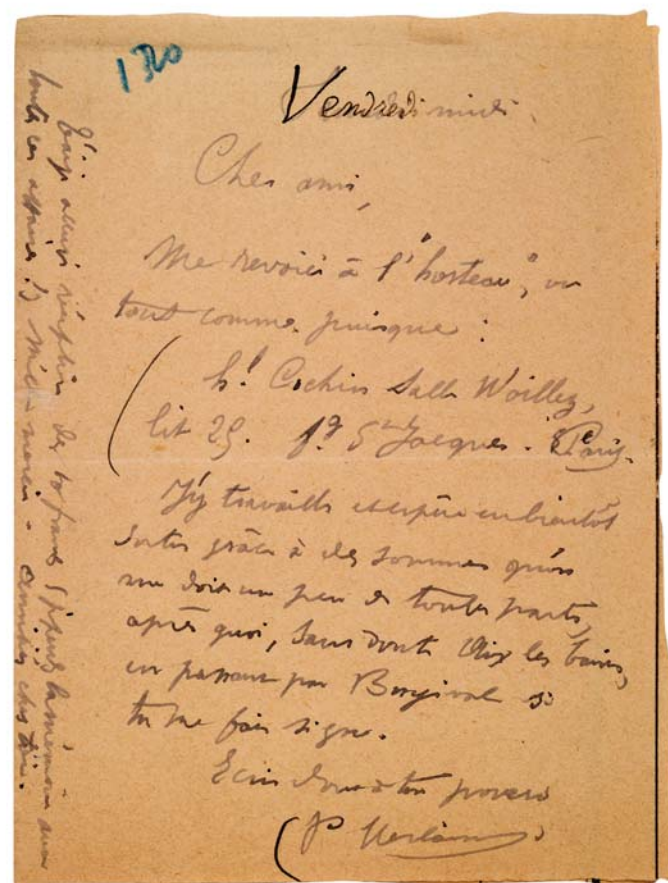 1320
Vendredi midi.
Cher ami,
Me revoici à l'"hosteau", ou
tout comme puisque :
h.l Cochin Salle Woillez,
lit 25. fg St Jacques. Paris.
J'y travaille et espère en bientôt
sortir grâce à des sommes qu'on
me doit un peu de toutes parts,
après quoi, sans doute Aix les bains,
en passant par Bougival si
tu me fais signe.
Ecris donc à ton pauvre
P Verlaine
J'ai reçu des francs
toutes ces affaires merci amitiés chez toi.